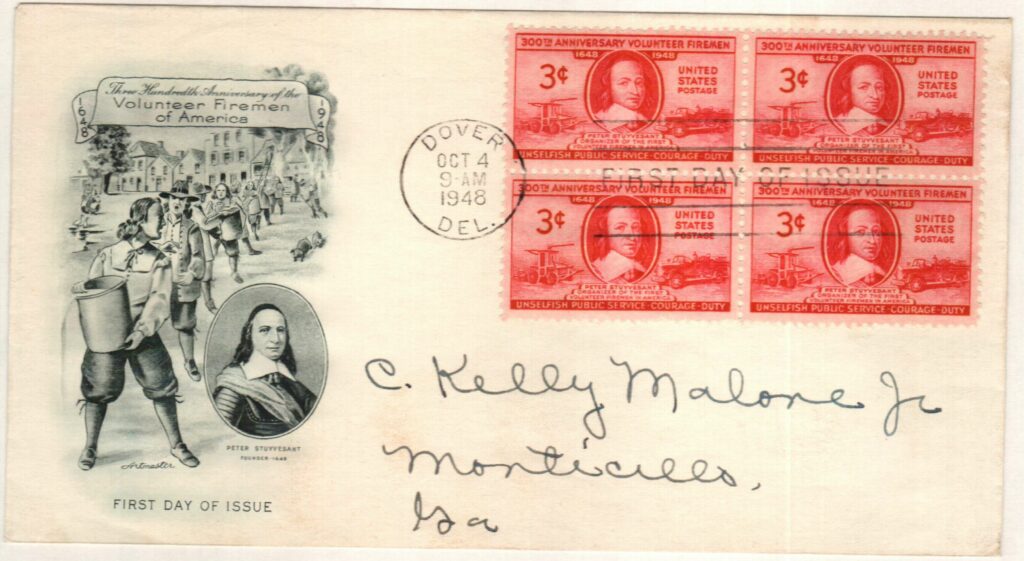 Three Hundredth Anniversary of the
1648 Volunteer Firemen 1948
of America
PETER STUYVESANT
FOUNDER-1648
Artmaster
FIRST DAY OF ISSUE
300TH ANNIVERSARY VOLUNTEER FIREMEN
1648 1948
3¢ UNITED STATES POSTAGE
PETER STUYVESANT
ORGANIZER OF THE FIRST
VOLUNTEER FIREMEN IN AMERICA
UNSELFISH PUBLIC SERVICE·COURAGE·DUTY
300TH ANNIVERSARY VOLUNTEER FIREMEN
1648 1948
3¢ UNITED STATES POSTAGE
PETER STUYVESANT
ORGANIZER OF THE FIRST
VOLUNTEER FIREMEN IN AMERICA
UNSELFISH PUBLIC SERVICE·COURAGE·DUTY
DOVER
OCT 4
9-AM
1948
DEL.
FIRST DAY OF ISSUE
300TH ANNIVERSARY VOLUNTEER FIREMEN
1648 1948
3¢ UNITED STATES POSTAGE
PETER STUYVESANT
ORGANIZER OF THE FIRST
VOLUNTEER FIREMEN IN AMERICA
UNSELFISH PUBLIC SERVICE·COURAGE·DUTY
300TH ANNIVERSARY VOLUNTEER FIREMEN
1648 1948
3¢ UNITED STATES POSTAGE
PETER STUYVESANT
ORGANIZER OF THE FIRST
VOLUNTEER FIREMEN IN AMERICA
UNSELFISH PUBLIC SERVICE·COURAGE·DUTY
C. Kelly Malone Jr
Monticello,
Ga